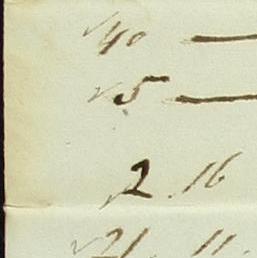 40 —
5 —
2 16
21 11